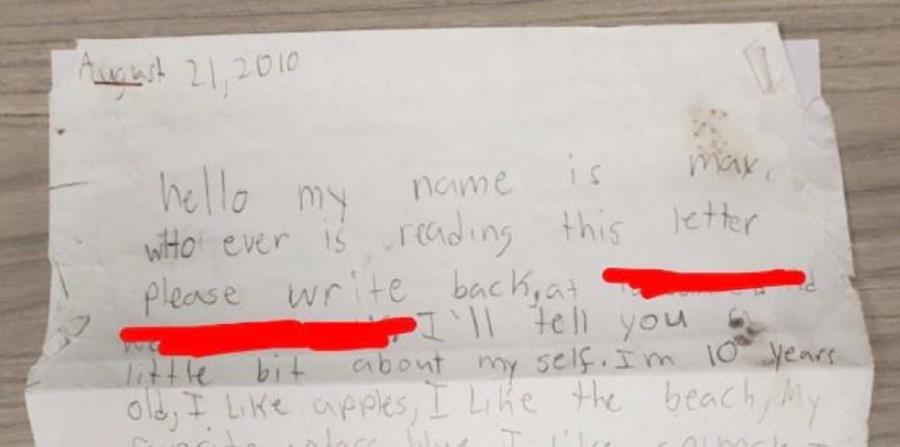 August 21, 2010
hello my name is max,
who ever is reading this letter
please write back, at
I'll tell you a
little bit about my self. Im 10 years
old, I Like apples, I Like the beach, My
favorite colors blue I like